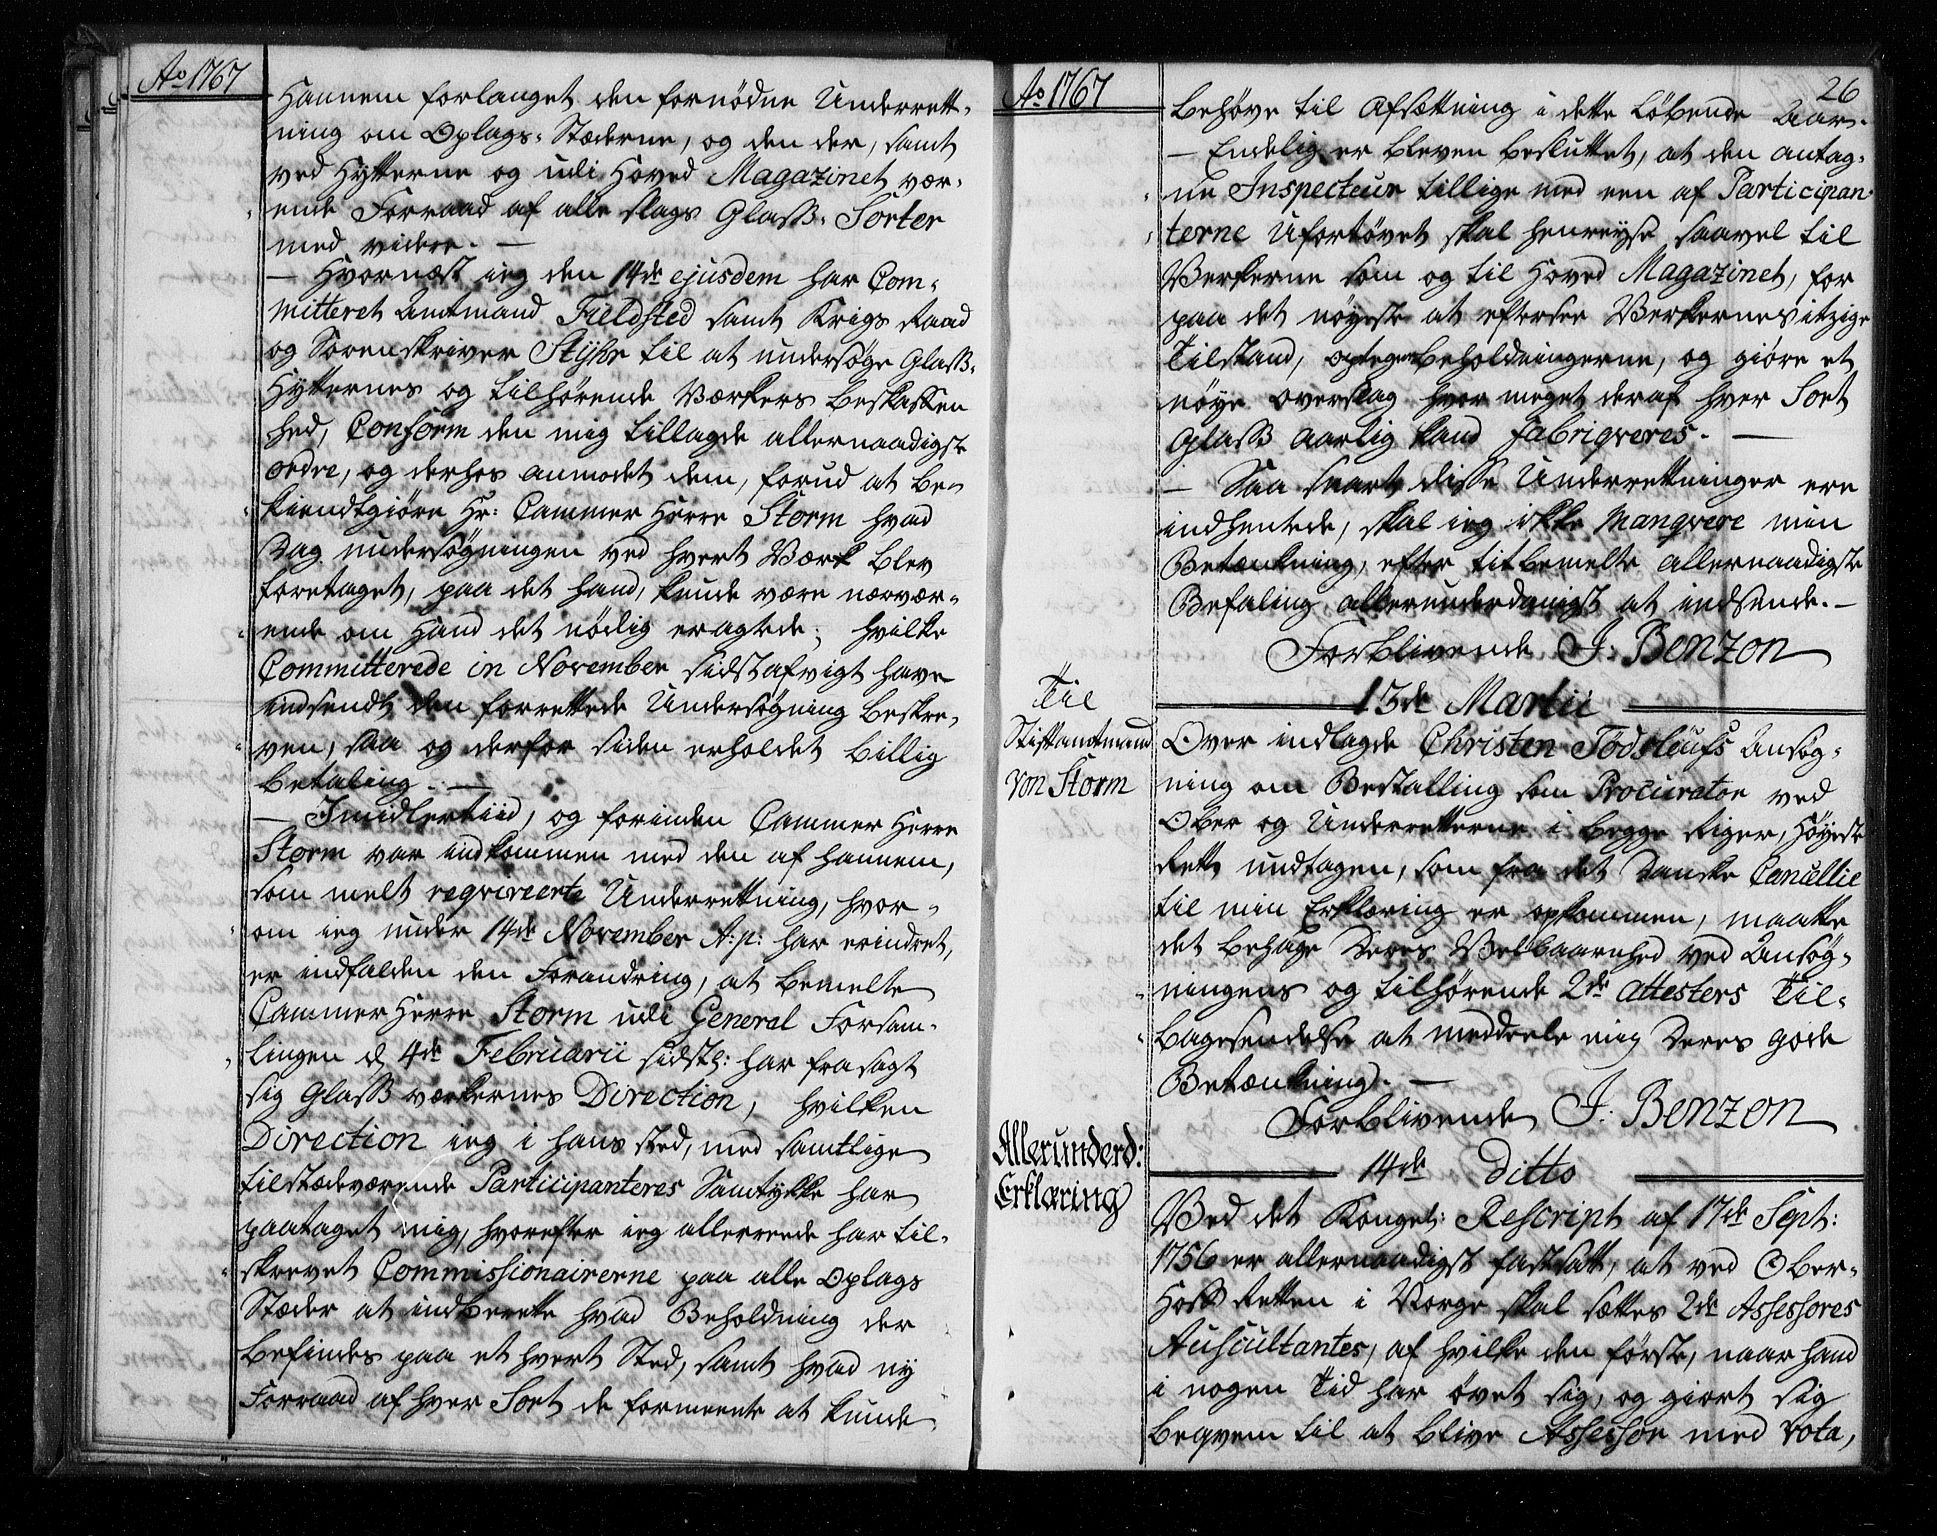 Ao 1767
Hannem forlanget den fornødne Underrett-
ning om Oplags-Stæderne, og den der, samt
ved Hytterne og udi Hoved Magazinet vær-
ende Forraad af alle slags Glass-Sorter
med videre. —
— Hvornæst ieg den 14de ejusdem har Com-
mitteret Amtmand Fieldsted samt Krigs Raad
og Sorenskriver til at undersøge Glass-
Hytternes og tilhørende Værkers Beskaffen
hed, Conform den mig tillagde allernaadigste
Ordre, og derhos anmodet dem, forud at be-
kiendtgiøre Hr: Cammer Herre Storm hvad
Dag undersøgningen ved hvert Værk blev
foretaget, paa det hand kunde være nærvær-
ende om Hand det nødig eragtede; hvilke
Committerede in November sidstafvigt have
indsendt den forrettede Undersøgning beskre-
ven, saa og derfor siden erholdet billig
betaling. —
— Imidlertiid, og forinden Cammer Herre
Storm var indkommen med den af hannem,
som melt reqvireerte Underrettning, hvor-
om ieg under 14de November A: p: har erindret,
er indfalden den Forandring, at bemelte
Cammer Herre Storm udi General Forsam-
lingen d 4de Februarii sidstl: har frasagt
sig Glass værkernes Direction, hvilken
Direction ieg i hans sted, med samtlige
tilstædeværende Participanteres Samtykke har
paataget mig, hvorefter ieg allerreede har til-
skrevet Commissionairerne paa alle Oplags
Stæder at indberette hvad Beholdning der
befindes paa et hvert Sted, samt hvad ny
Forraad af hver Sort de formeente at kunde
Ao 1767
26
behøve til Afsættning i dette løbende Aar.
— Endelig er bleven besluttet, at den antag-
ne Inspecteur tillige med een af Participan-
terne Ufortøvet skal henreyse saavel til
Verkerne som og til Hoved Magazinet, for
paa det nøyeste at eftersee Verkernes itzige
Tilstand, optegne beholdningerne, og giøre et
nøye Overslag hvor meget deraf hver Sort
Glass aarlig kand fabriqveres. —
— Saa snart disse Underrettninger ere
indhentede, skal ieg ikke manqvere min
Betænkning, efter titbemelte allernaadigste
Befaling allerunderdanigst at indsende. —
Forblivende J: Benzon
13de Martii
Til
Stiftamtmand
von Storm
Over indlagde Christen Tødsleufs Ansøg-
ning om Bestalling som Procurator ved
Ober og Underretterne i begge Riger, Høyeste
Rett undtagen, som fra det Danske Cancellie
til min Erklæring er opkommen, maatte
det behage Deres Velbaarenhed ved Ansøg-
ningens og tilhørende 2de attesters Til-
bagesendelse at meddeele mig Deres gode
Betænkning. —
Forblivende J: Benzon
14de Ditto
Allerunderd:
Erklæring
Ved det Kongel: Rescript af 17de Sept:
1756 er allernaadigst fastsatt, at ved Ober-
Hoff Retten i Norge skal sættes 2de Assessores
Auscultantes, af hvilke den første, naar hand
i nogen Tid har øvet sig, og giort sig
beqvem til at blive Assessor med vota,